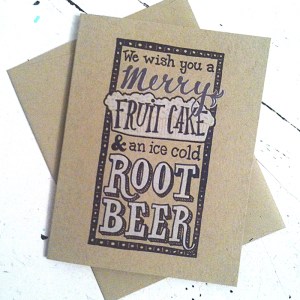 We wish you a
Merry
FRUIT CAKE
& an ice cold
ROOT
BEER